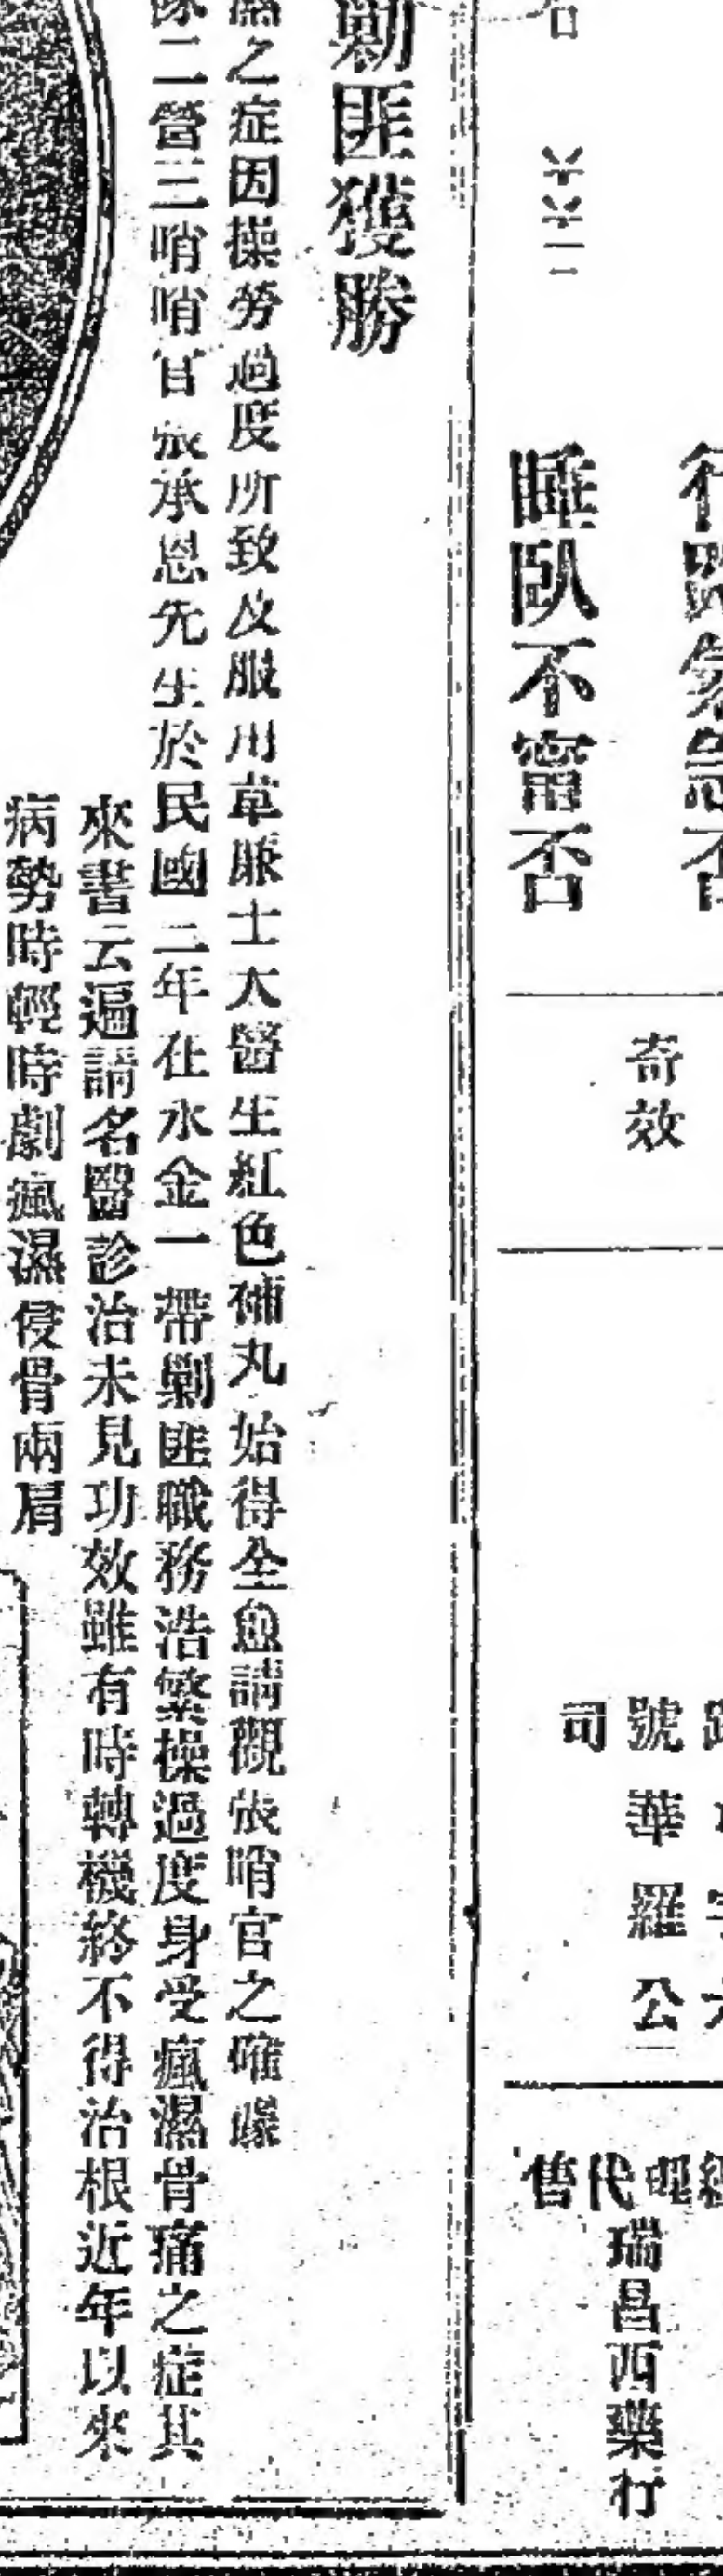 睡臥不甯否
奇效
號華羅公
司
代售
瑞昌西藥行
勦匪獲勝
之症因操勞過度所致及服用韋廉士大醫生紅色補丸始得全愈請觀張哨官之確據
二營三哨哨官張承恩先生於民國二年在永金一帶剿匪職務浩繁操過度身受瘋濕骨痛之症其
來書云遍請名醫診治未見功效雖有時轉機終不得治根近年以來
病勢時輕時劇瘋濕侵骨兩肩